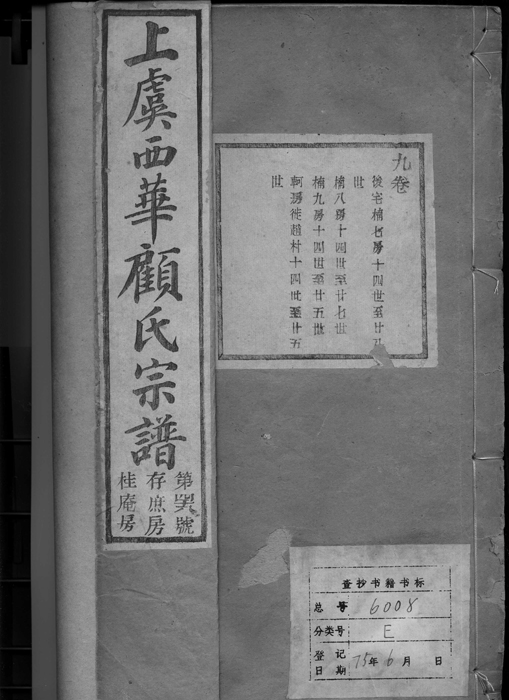 上虞西華顧氏宗譜
第 號
存庶房
桂庵房
九卷
後宅楠七房十四世至廿
世
楠八房十四世至廿七世
楠九房十四世至廿五世
軻房徙趙村十四世至廿五
世
查抄书籍书标
总号 6008
分类号 E
登记日期 75年6月 日